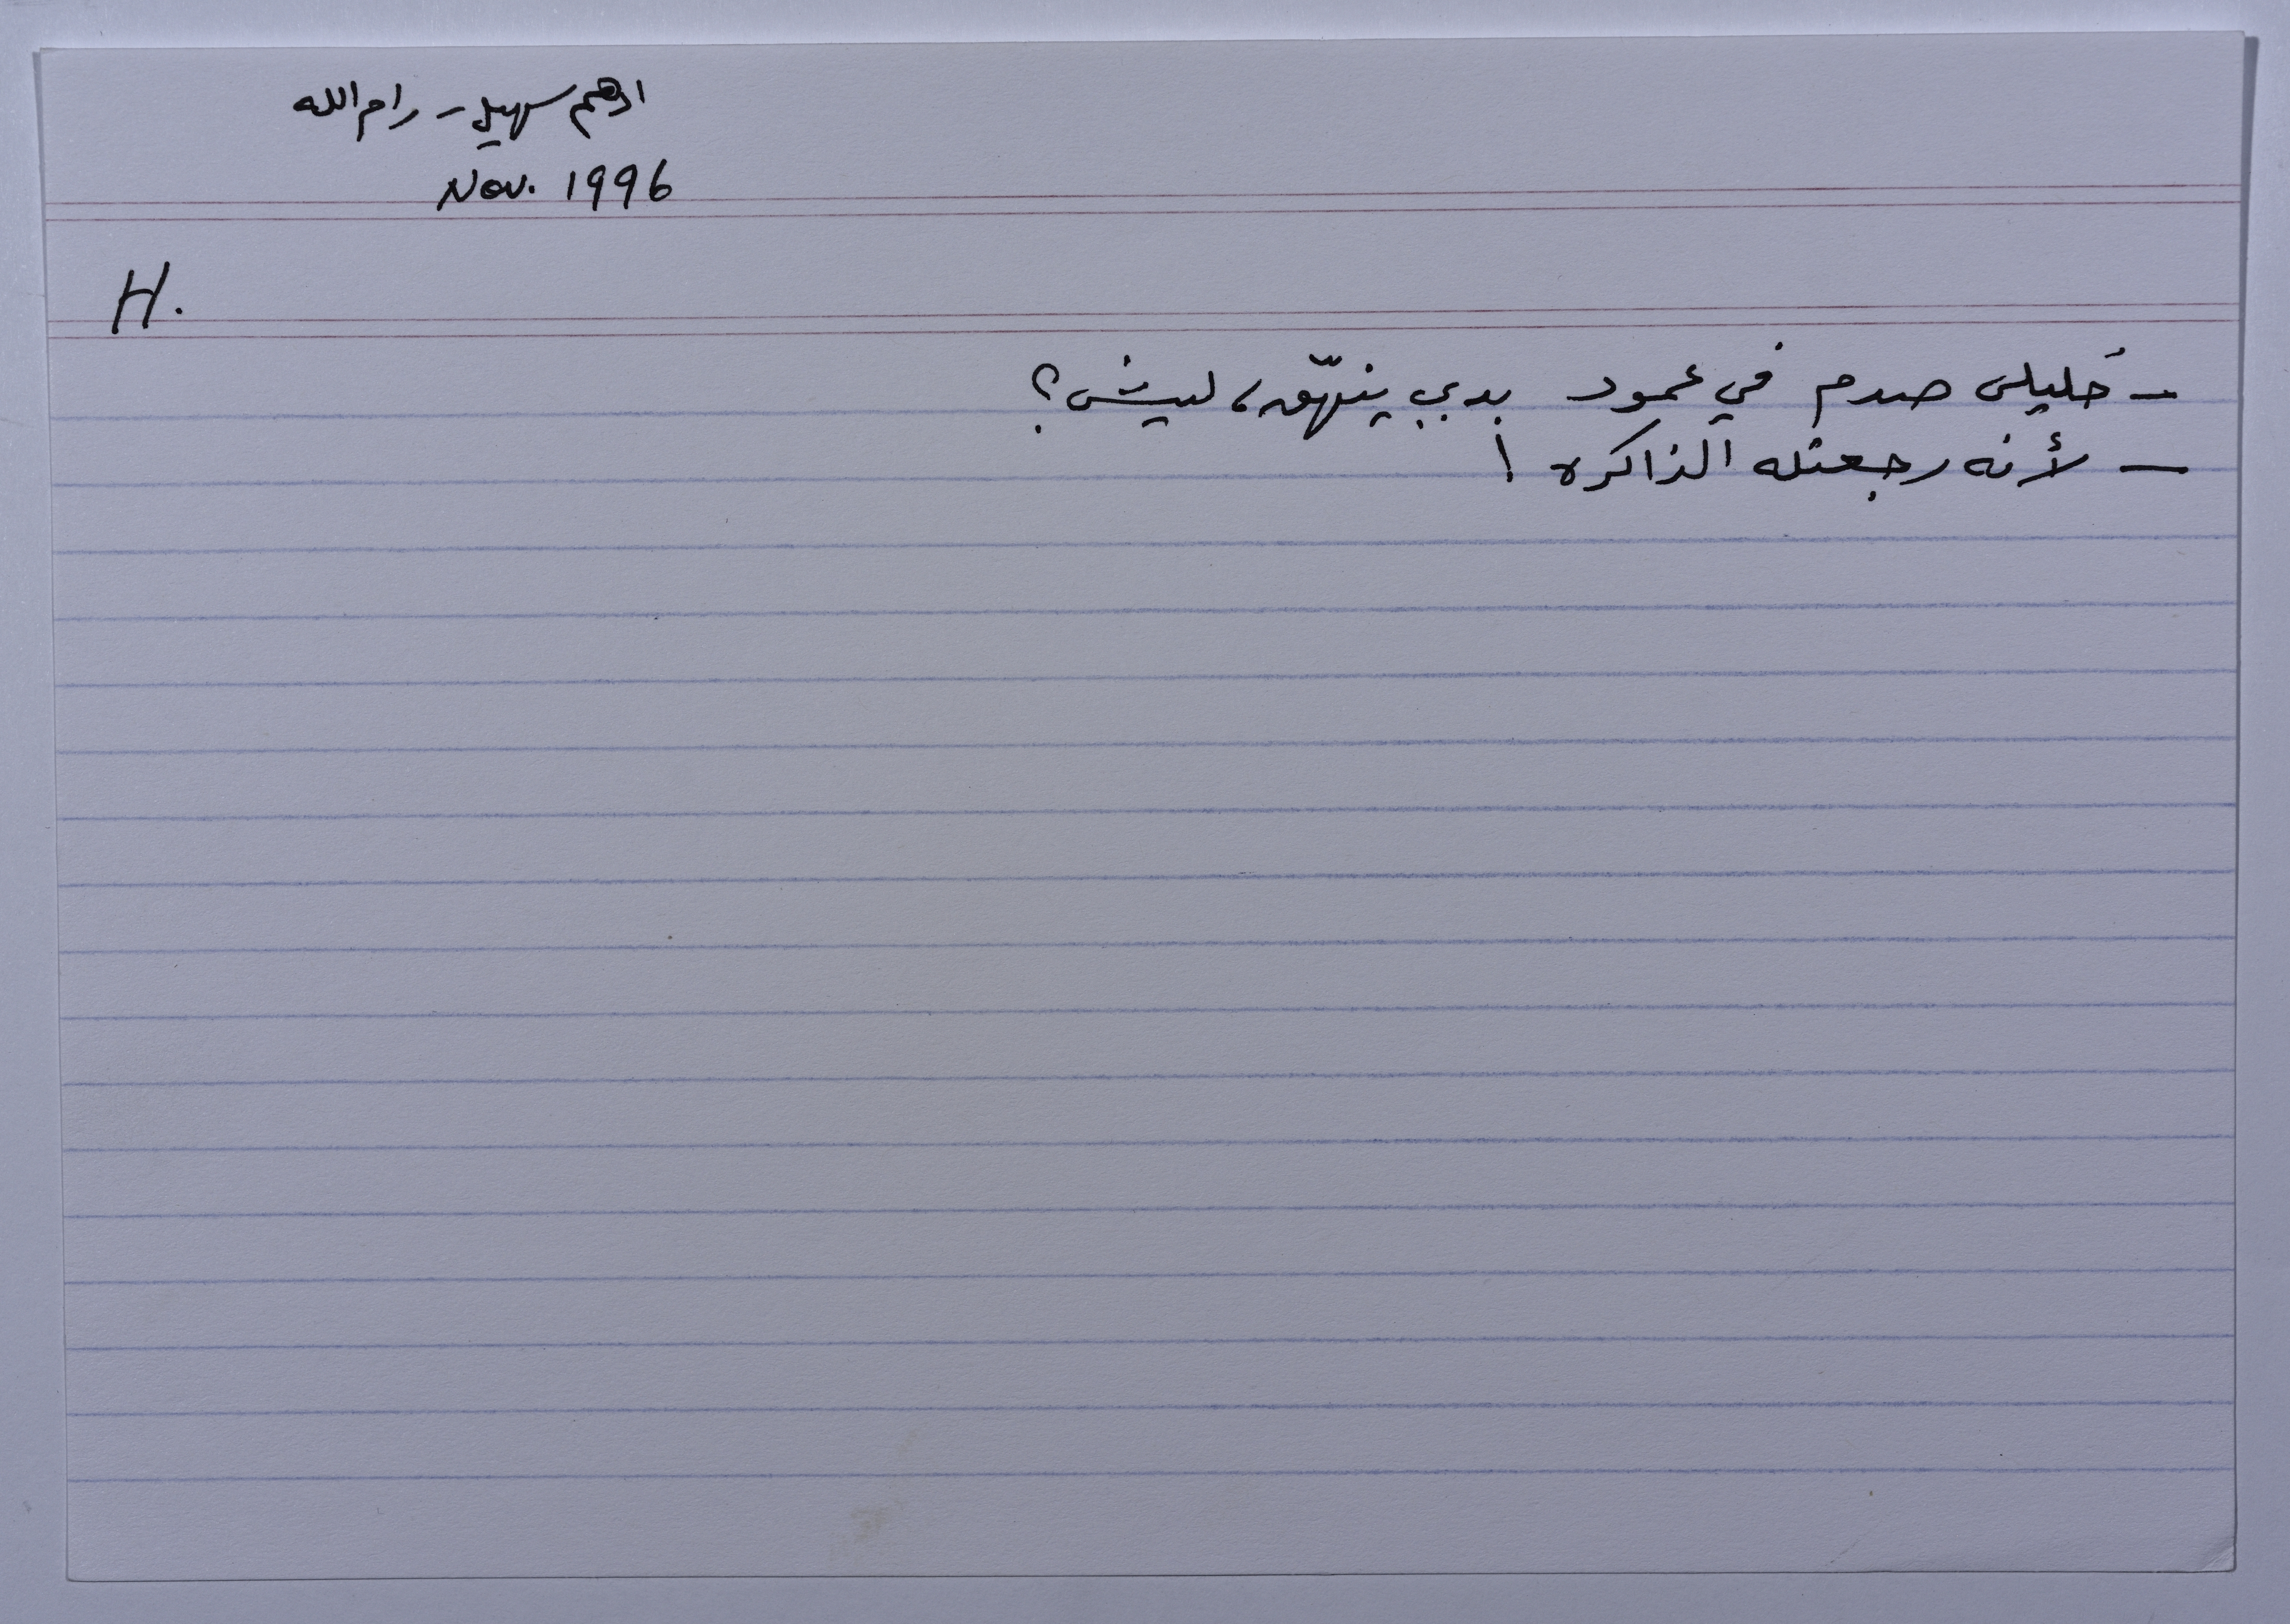 ادهم سهيل - رام الله
Nov. 1996
H.
- خليلي صدم في عمود بدي ينهّق، ليش؟
- لأنه رجعتله الذاكره!